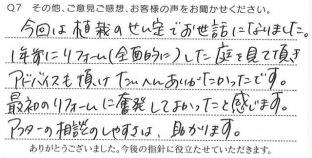 Q7 その他、ご意見ご感想、お客様の声をお聞かせください。
今回は植栽のせん定でお世話になりました。
1年前にリフォーム(全面的に)した庭を見て頂き
アドバイスも頂けたいへんありがたかったです。
最初のリフォームに奮発してよかったと感じます。
アフターの相談のしやすさは、助かります。
ありがとうございました。今後の指針に役立たせていただきます。